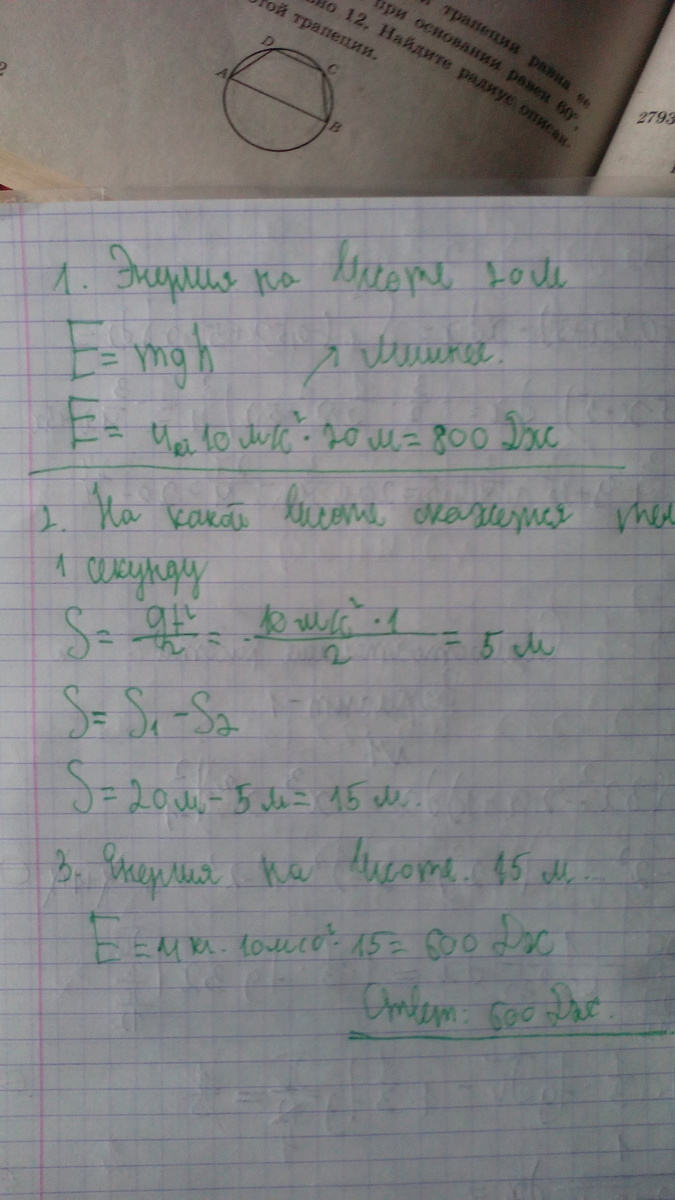 трапеции равна ее
при основании равен 60°,
вно 12. Найдите радиус описан-
этой трапеции.
2793
2
D
C
A
B
1. Энергия на высоте 20 м
E = mgh
E = 4кг 10 м/с² · 20 м = 800 Дж
2. На какой высоте окажется тел
1 секунду
S = gt²/2 = 10 м/с² · 1 / 2 = 5 м
S = S₁ - S₂
S = 20 м - 5 м = 15 м.
3. Энергия на высоте. 15 м.
E = 4 кг · 10 м/с² · 15 = 600 Дж
Ответ: 600 Дж.